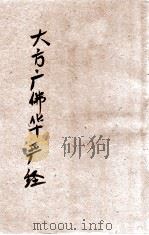 大方广佛华严经
www.mtoou.info